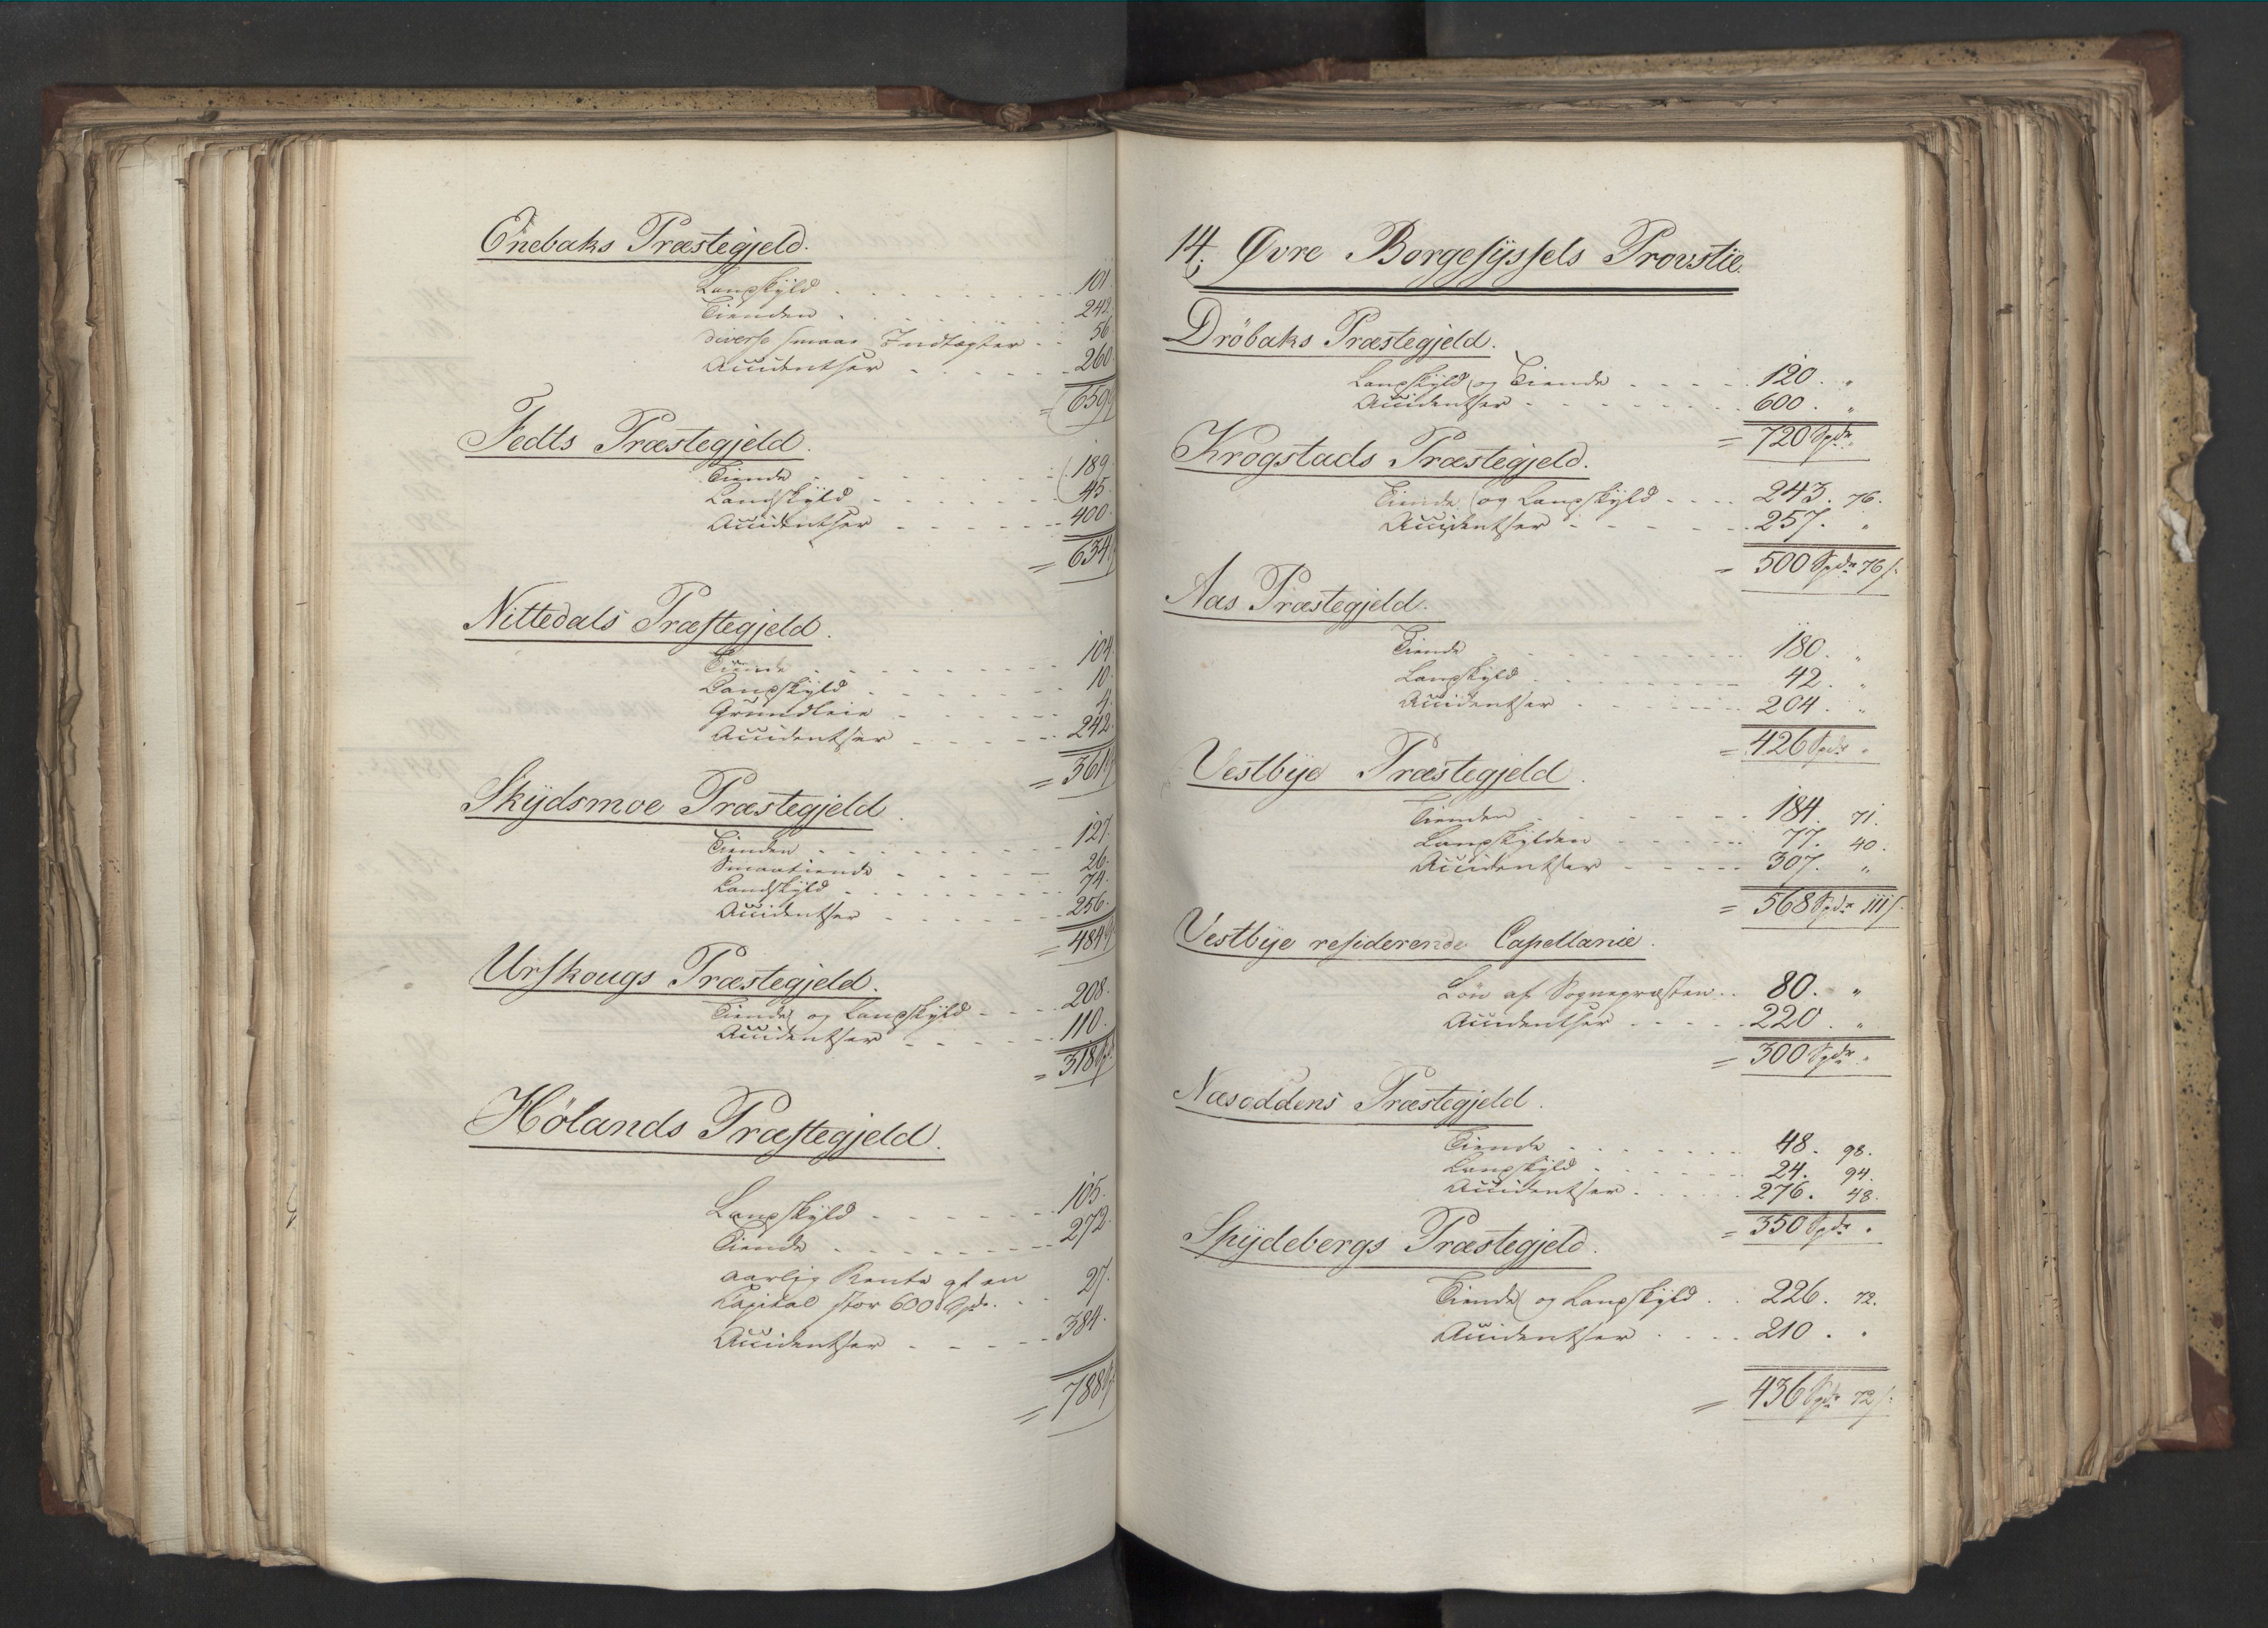 Enebaks Præstegjeld.
Landskyld 101.
Tienden 242
diverse smaae Indtægter 56
Accidentser 260
= 659
Fedts Præstegjeld.
Tiende 189.
Landskyld 45.
Accidentser 400.
= 634
Nittedals Præstegjeld.
Tiende 104
Landskyld 10.
Grundleie 4.
Accidentser 242.
= 361
Skydsmoe Præstegjeld.
Tienden 127.
Smaatiende 26.
Landskyld 74.
Accidentser 256.
= 484
Urskougs Præstegjeld.
Tiende og Landskyld 208.
Accidentser 110.
= 318
Hölands Præstegjeld.
Landskyld 105.
Tiende 272.
aarlig Rente af en
Capital stor 600 Spd. 27.
Accidentser 384.
= 788
14. Øvre Borgesyssels Provstie.
Dröbaks Præstegjeld.
Landskyld og Tiende 120. "
Accidentser 600. "
= 720 Spdr "
Krogstads Præstegjeld.
Tiende og Landskyld 243. 76.
Accidentser 257. "
= 500 Spdr 76 s.
Aas Præstegjeld.
Tiende 180. "
Landskyld 42. "
Accidentser 204. "
= 426 Spdr "
Vestbye Præstegjeld.
Tienden 184. 71.
Landskylden 77. 40.
Accidentser 307. "
= 568 Spdr 111 s.
Vestbye residerende Capellanie.
Løn af Sognepræsten 80. "
Accidentser 220. "
= 300 Spdr "
Næsoddens Præstegjeld.
Tiende 48. 98.
Landskyld 24. 94.
Accidentser 276. 48.
= 350 Spdr "
Spydebergs Præstegjeld.
Tiende og Landskyld 226. 72.
Accidentser 210. "
= 436 Spdr 72 s.